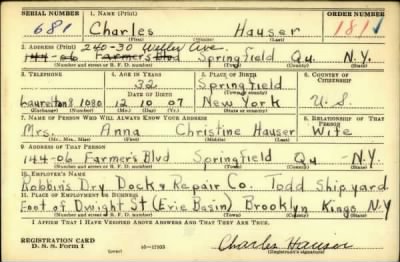 SERIAL NUMBER 1. NAME (Print) ORDER NUMBER
681 Charles Hauser 1811
(First) (Middle) (Last)
2. ADDRESS (Print) 240-30 Weller Ave.
144-06 Farmer's Blvd Springfield Qu N.Y.
(Number and street or R. F. D. number) (Town) (County) (State)
3. TELEPHONE 4. AGE IN YEARS 5. PLACE OF BIRTH 6. COUNTRY OF CITIZENSHIP
32 Springfield
DATE OF BIRTH (Town or county)
Laurelton 8 1080 12 10 07 New York U.S.
(Exchange) (Number) (Mo.) (Day) (Yr.) (State or country)
7. NAME OF PERSON WHO WILL ALWAYS KNOW YOUR ADDRESS 8. RELATIONSHIP OF THAT PERSON
Mrs. Anna Christine Hauser Wife
(Mr., Mrs., Miss) (First) (Middle) (Last)
9. ADDRESS OF THAT PERSON
144-06 Farmer's Blvd Springfield Qu N.Y.
(Number and street or R. F. D. number) (Town) (County) (State)
10. EMPLOYER'S NAME
Robbins Dry Dock & Repair Co. Todd Shipyard
11. PLACE OF EMPLOYMENT OR BUSINESS
Foot of Dwight St (Erie Basin) Brooklyn Kings N.Y
(Number and street or R. F. D. number) (Town) (County) (State)
I AFFIRM THAT I HAVE VERIFIED ABOVE ANSWERS AND THAT THEY ARE TRUE.
REGISTRATION CARD
D. S. S. Form 1 16-17105 Charles Hauser
(Registrant's signature)